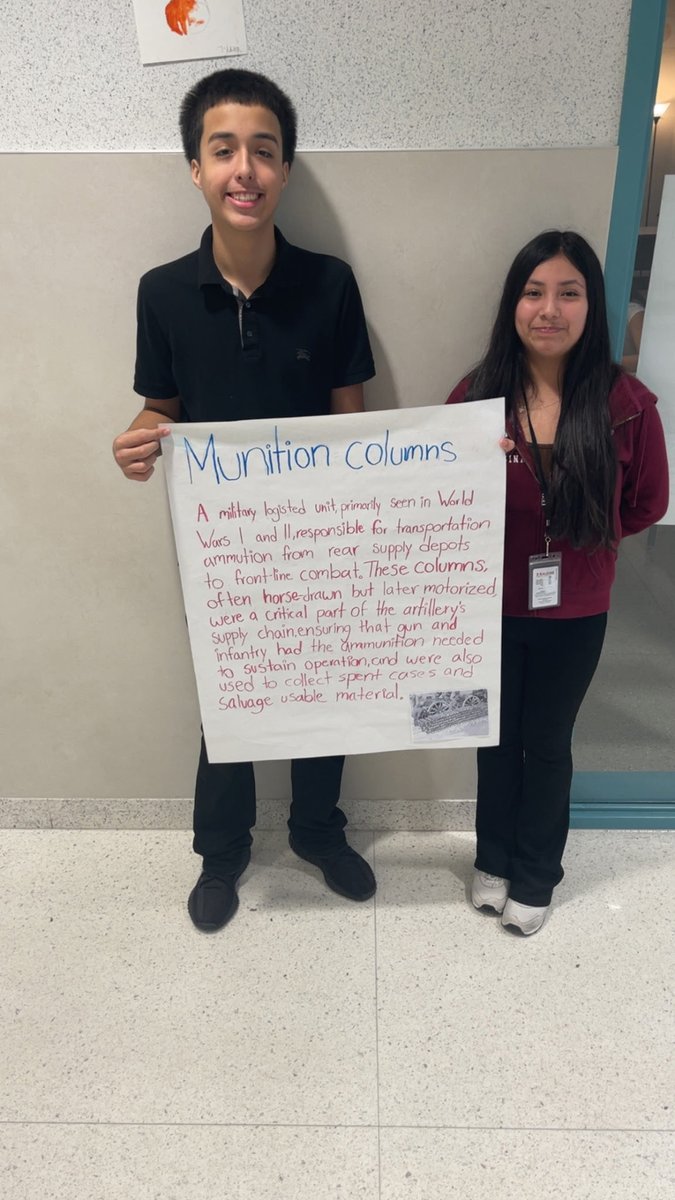 Munition columns
A military logisted unit, primarily seen in World
Wars I and II, responsible for transportation
ammution from rear supply depots
to front-line combat. These columns,
often horse-drawn but later motorized,
were a critical part of the artillery's
supply chain, ensuring that gun and
infantry had the ammunition needed
to sustain operation, and were also
used to collect spent cases and
salvage usable material.